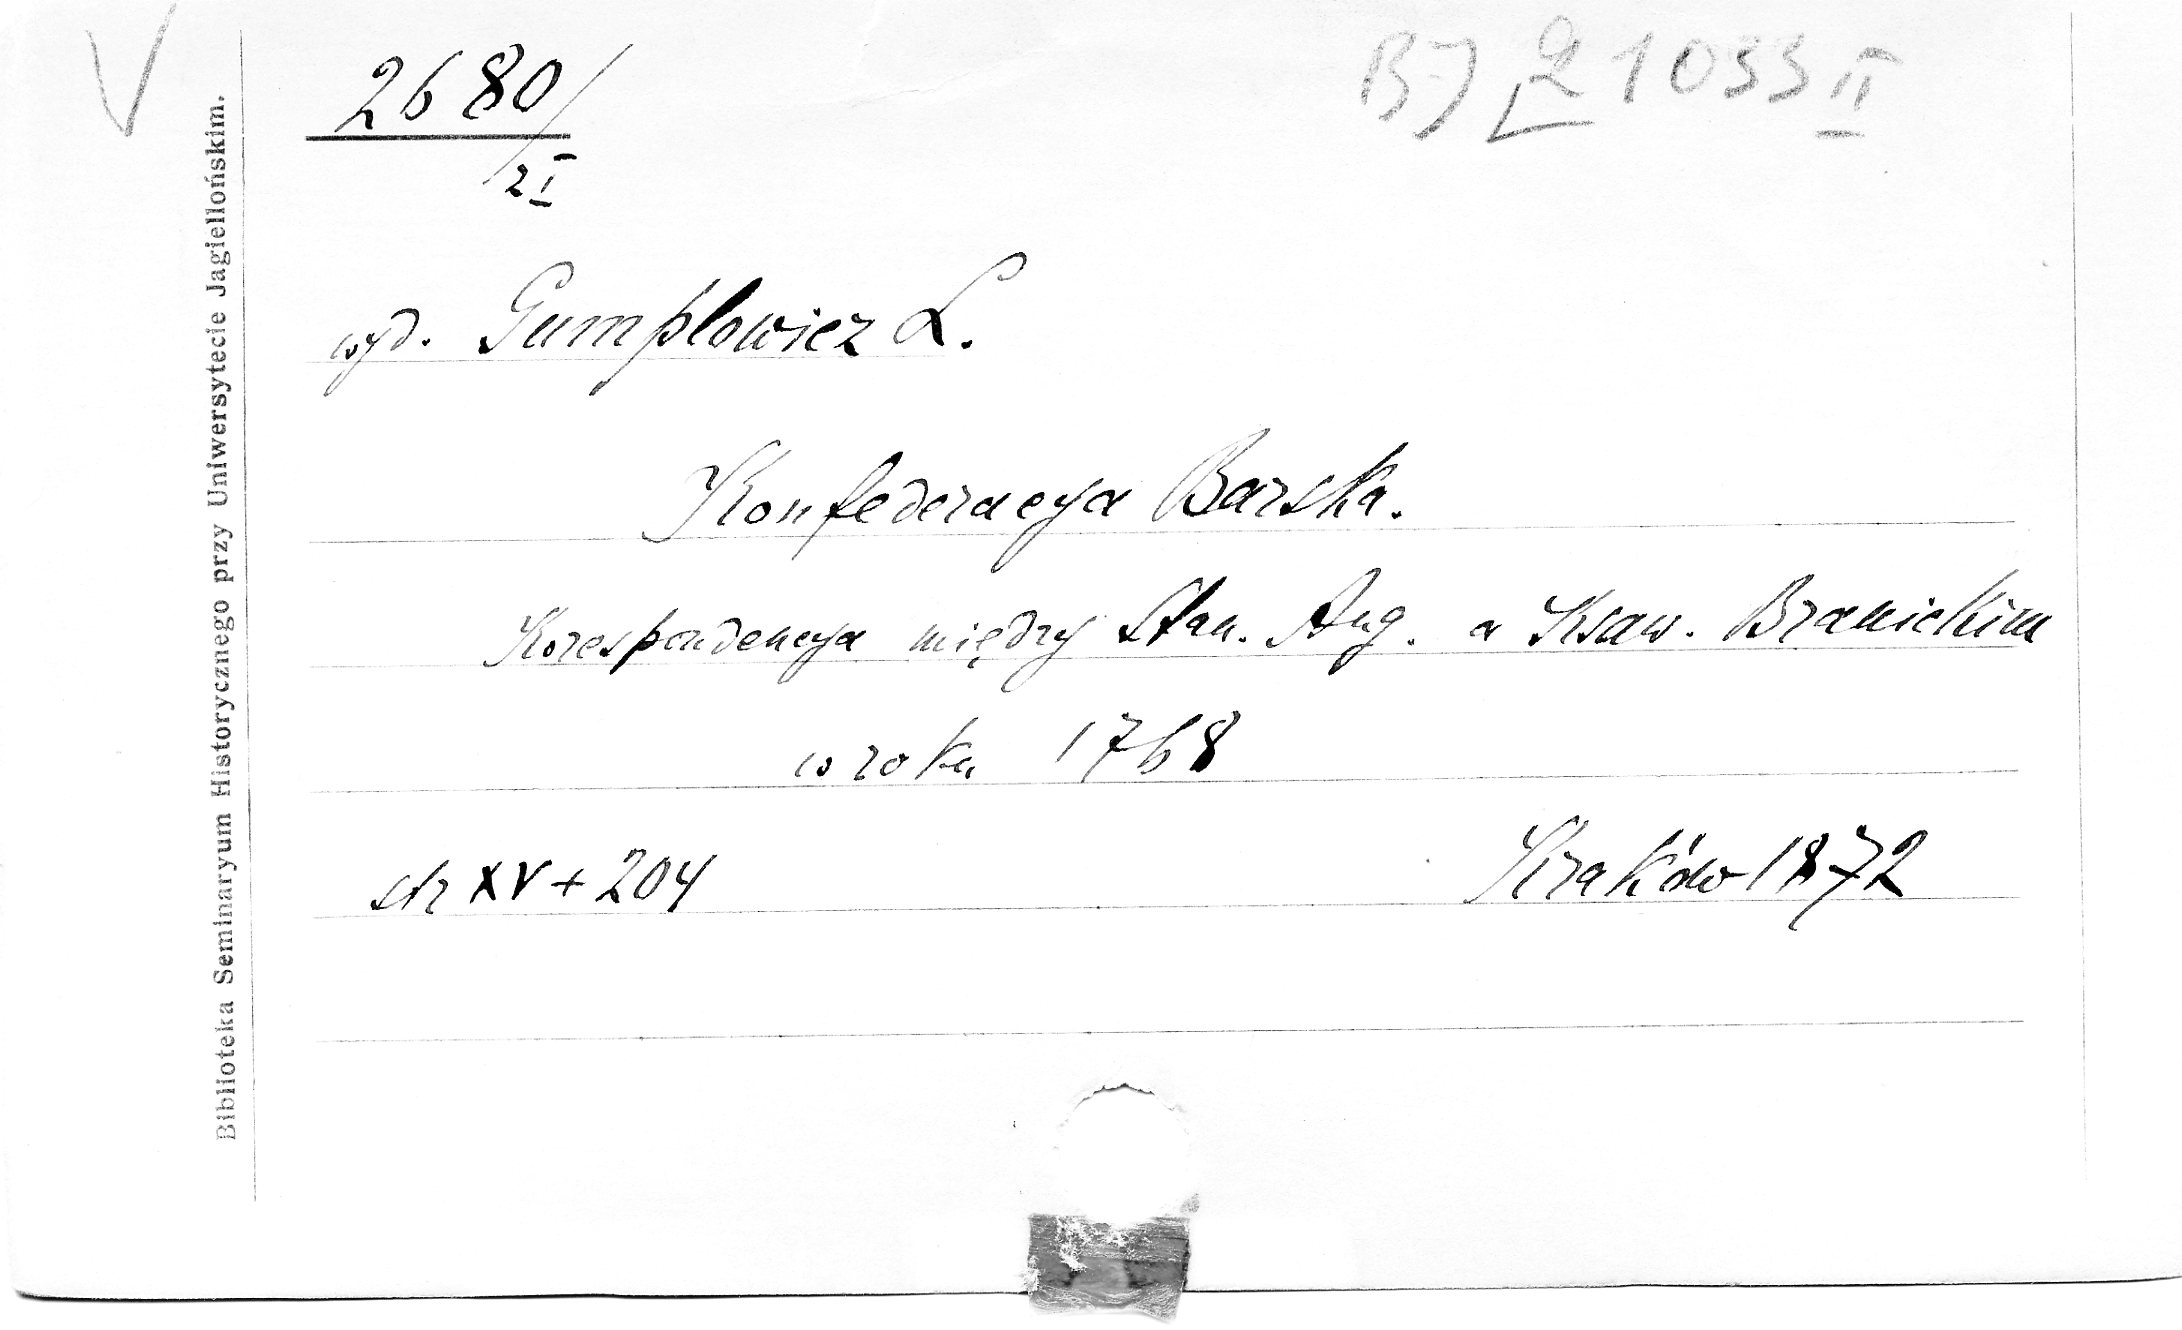 V
2680/
2 I
BJ 1033 II
wyd. Gumplowicz L.
Konfederacya Barska.
Korespondencya między Stan. Aug. a Ksaw. Branickim
w roku 1768
str XV + 204
Kraków 1872
Biblioteka Seminaryum Historycznego przy Uniwersytecie Jagiellońskim.